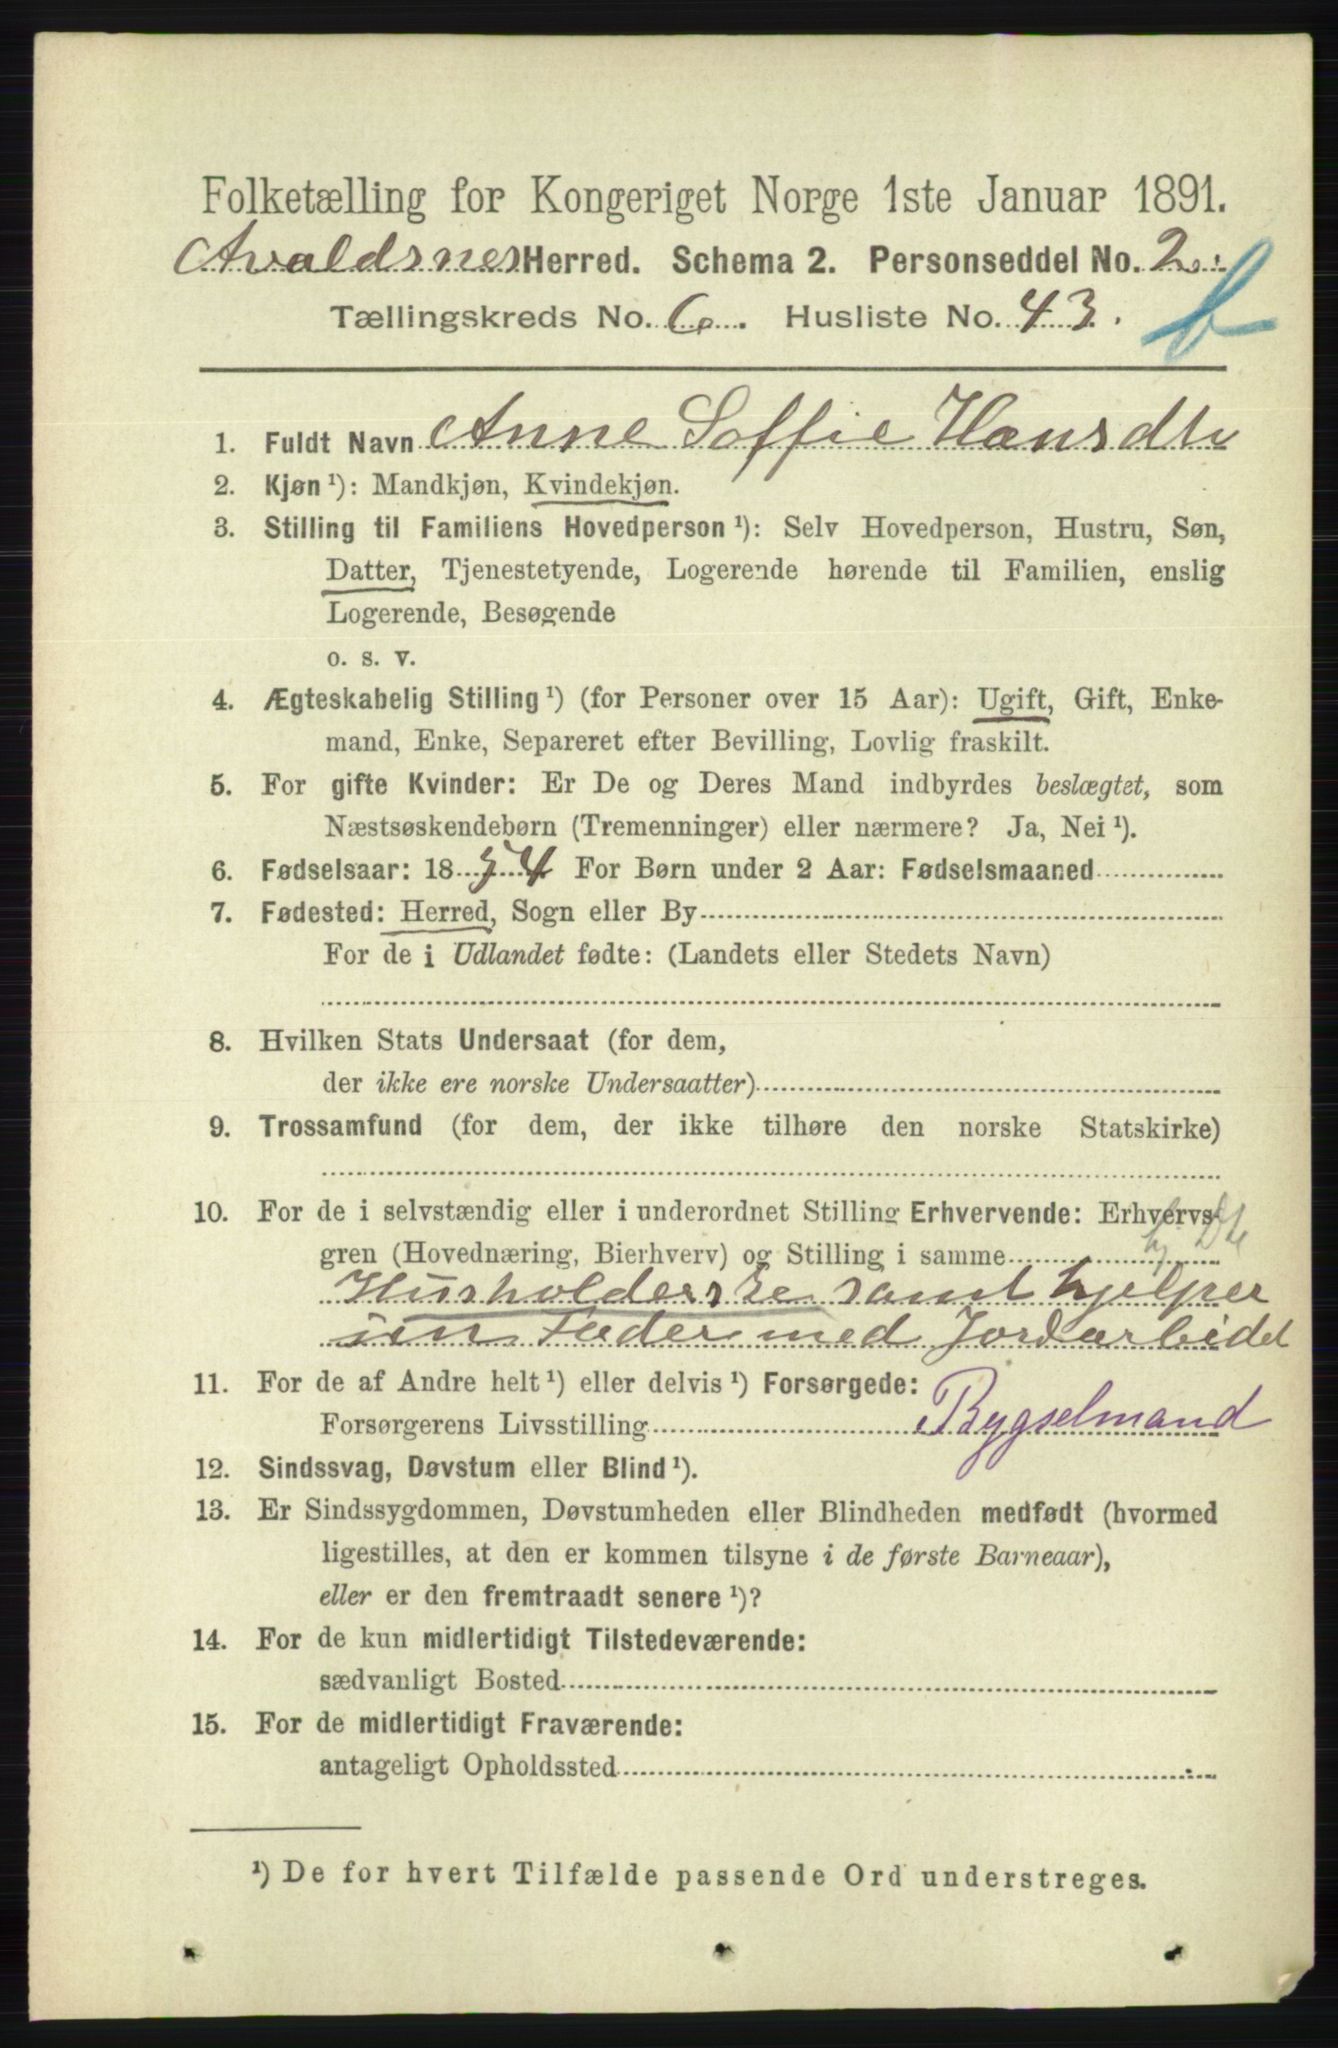 Folketælling for Kongeriget Norge 1ste Januar 1891.
Avaldsnes Herred. Schema 2. Personseddel No. 2.
Tællingskreds No. 6. Husliste No. 43. b
1. Fuldt Navn Anne Soffie Hansdtr
2. Kjøn ¹): Mandkjøn, Kvindekjøn.
3. Stilling til Familiens Hovedperson ¹): Selv Hovedperson, Hustru, Søn,
Datter, Tjenestetyende, Logerende hørende til Familien, enslig
Logerende, Besøgende
o. s. v.
4. Ægteskabelig Stilling ¹) (for Personer over 15 Aar): Ugift, Gift, Enke-
mand, Enke, Separeret efter Bevilling, Lovlig fraskilt.
5. For gifte Kvinder: Er De og Deres Mand indbyrdes beslægtet, som
Næstsøskendebørn (Tremenninger) eller nærmere? Ja, Nei ¹).
6. Fødselsaar: 1854 For Børn under 2 Aar: Fødselsmaaned
7. Fødested: Herred, Sogn eller By
For de i Udlandet fødte: (Landets eller Stedets Navn)
8. Hvilken Stats Undersaat (for dem,
der ikke ere norske Undersaatter)
9. Trossamfund (for dem, der ikke tilhøre den norske Statskirke)
10. For de i selvstændig eller i underordnet Stilling Erhvervende: Erhvervs-
gren (Hovednæring, Bierhverv) og Stilling i samme
Husholderske samt hjelper
sin Fader med Jordarbeidet
11. For de af Andre helt ¹) eller delvis ¹) Forsørgede:
Forsørgerens Livsstilling Bygselmand
12. Sindssvag, Døvstum eller Blind ¹).
13. Er Sindssygdommen, Døvstumheden eller Blindheden medfødt (hvormed
ligestilles, at den er kommen tilsyne i de første Barneaar),
eller er den fremtraadt senere ¹)?
14. For de kun midlertidigt Tilstedeværende:
sædvanligt Bosted
15. For de midlertidigt Fraværende:
antageligt Opholdssted
¹) De for hvert Tilfælde passende Ord understreges.